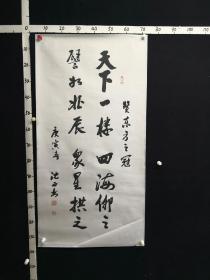 东方之冠
天下一楼四海仰之
譬如北辰众星拱之
庚寅春